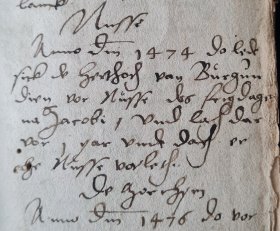 Nusse
Anno dm 1474 do lede
sick de Hertoch van Burgun
dien vor Nusse des frydages
na Jacobi, vnd lach dar
vor, jar vnde dach er
ehe Nusse vorleth.
De
Anno dm 1476 do vor